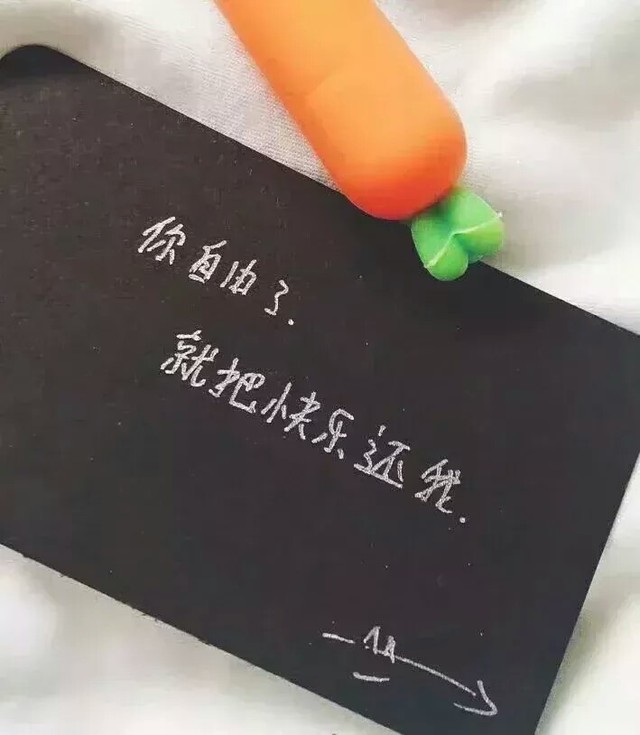 你自由了.
就把快乐还我.